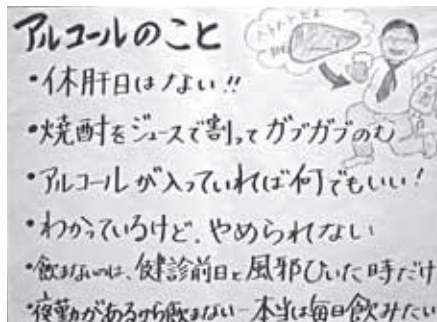 アルコールのこと
・休肝日はない!!
・焼酎をジュースで割ってガブガブのむ
・アルコールが入っていれば何でもいい!
・わかっているけど、やめられない
・飲まないのは、健診前日と風邪ひいた時だけ
・夜勤があるから飲まない-本当は毎日飲みたい